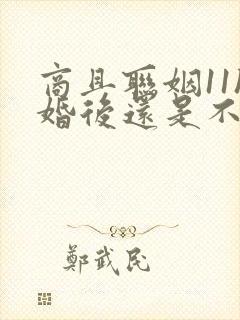 商且聯姻11
婚後還是不
鄭武民